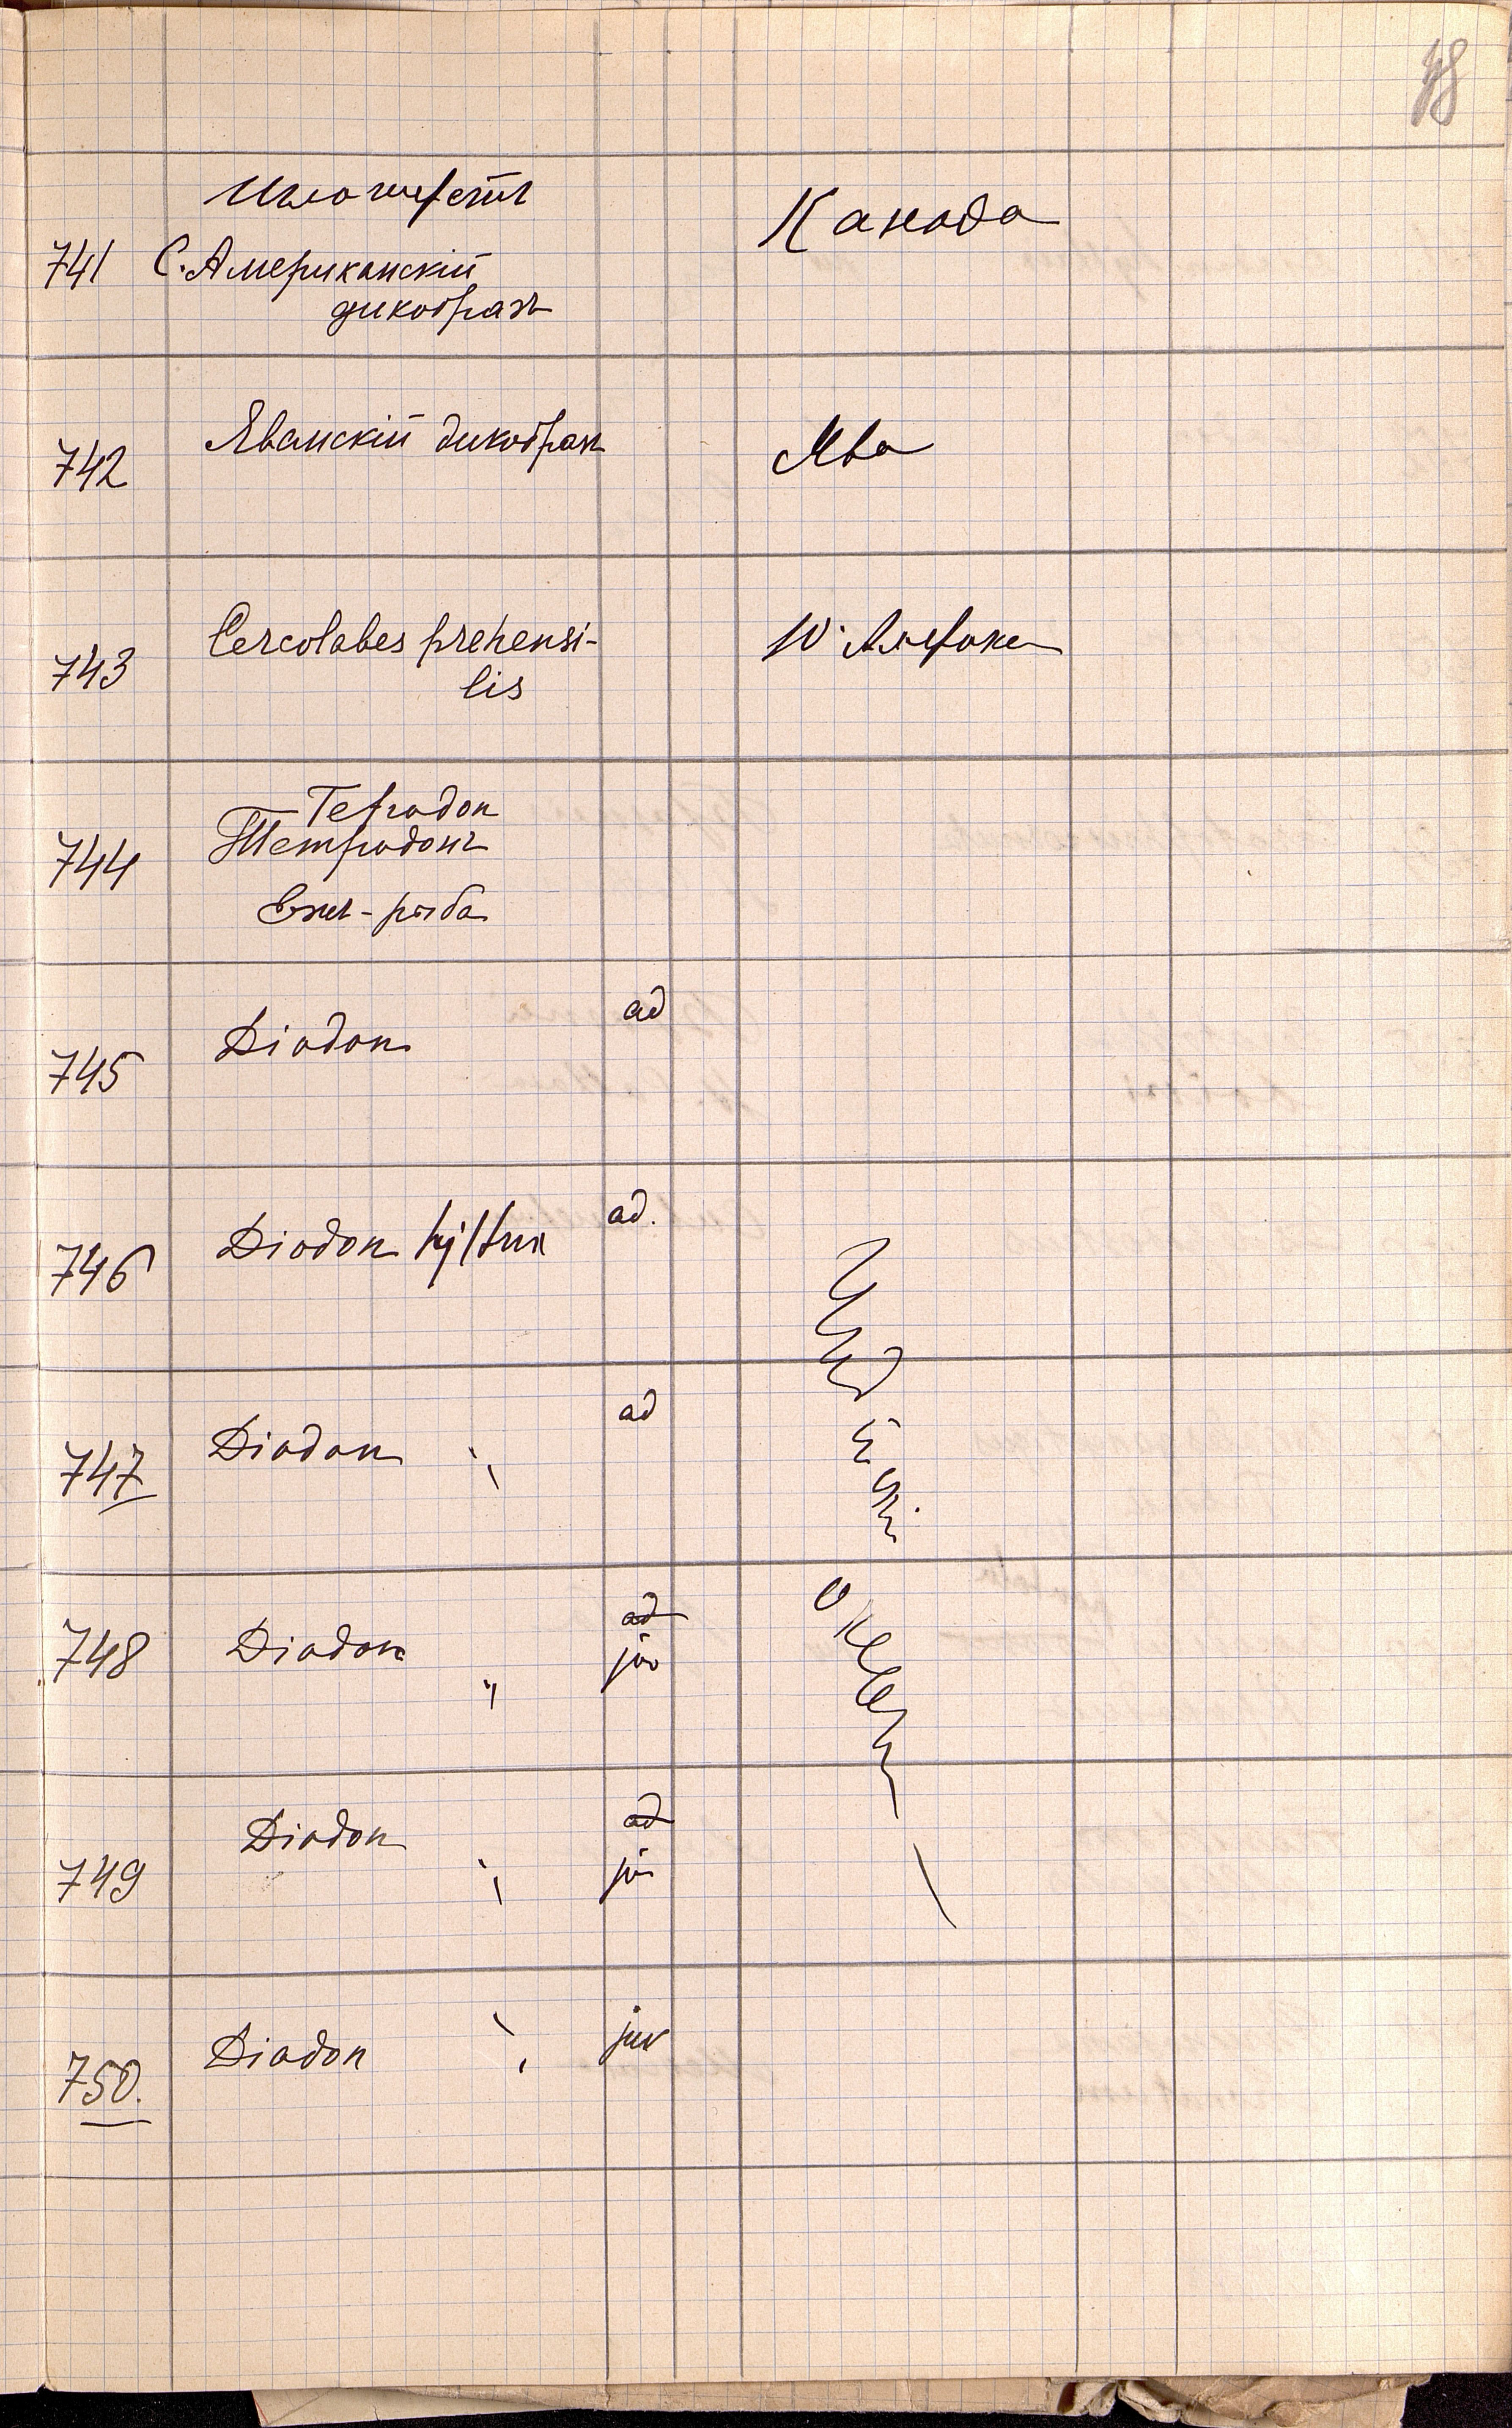 78
Иглошерстъ
Канада
741 С. Американскій
дикобразъ
742 Яванскій дикобразъ
Ява
743 Cercolabes prehensi-
lis
Ю. Америка
Tetrodon
744 Тетродонъ
Ежъ-рыба
745 Diodon ad
746 Diodon hystrix ad.
Индійскій
747 Diodon " ad
океанъ
748 Diodon " ad
juv
749 Diodon " ad
juv
750. Diodon " juv